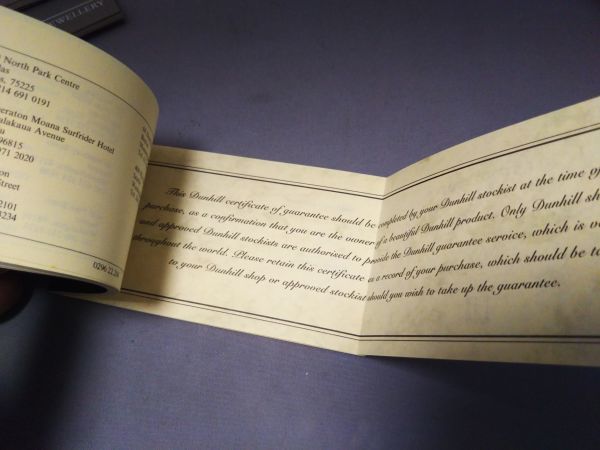 WELLERY
North Park Centre
las
s, 75225
214 691 0191
eraton Moana Surfrider Hotel
alakaua Avenue
lu
96815
971 2020
on
Street
2101
3234
0296 2L20
This Dunhill certificate of guarantee should be completed by your Dunhill stockist at the time of
purchase, as a confirmation that you are the owner of a beautiful Dunhill product. Only Dunhill sh
and approved Dunhill stockists are authorised to provide the Dunhill guarantee service, which is va
throughout the world. Please retain this certificate as a record of your purchase, which should be ta
to your Dunhill shop or approved stockist should you wish to take up the guarantee.